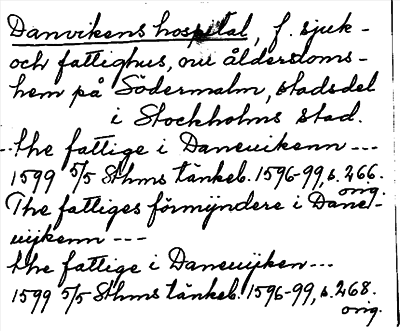 Danvikens hospital, f. sjuk-
och fattighus, nu ålderdoms-
hem på Södermalm, stadsdel
i Stockholms stad.
--the fattige i Daneuikenn ---
1599 5/5 Sthms tänkeb. 1596-99, s. 266.
orig.
The fattiges förmyndere i Dane-
uijkenn ---
the fattige i Daneuijken---
1599 5/5 Sthms tänkeb. 1596-99, s. 268.
orig.